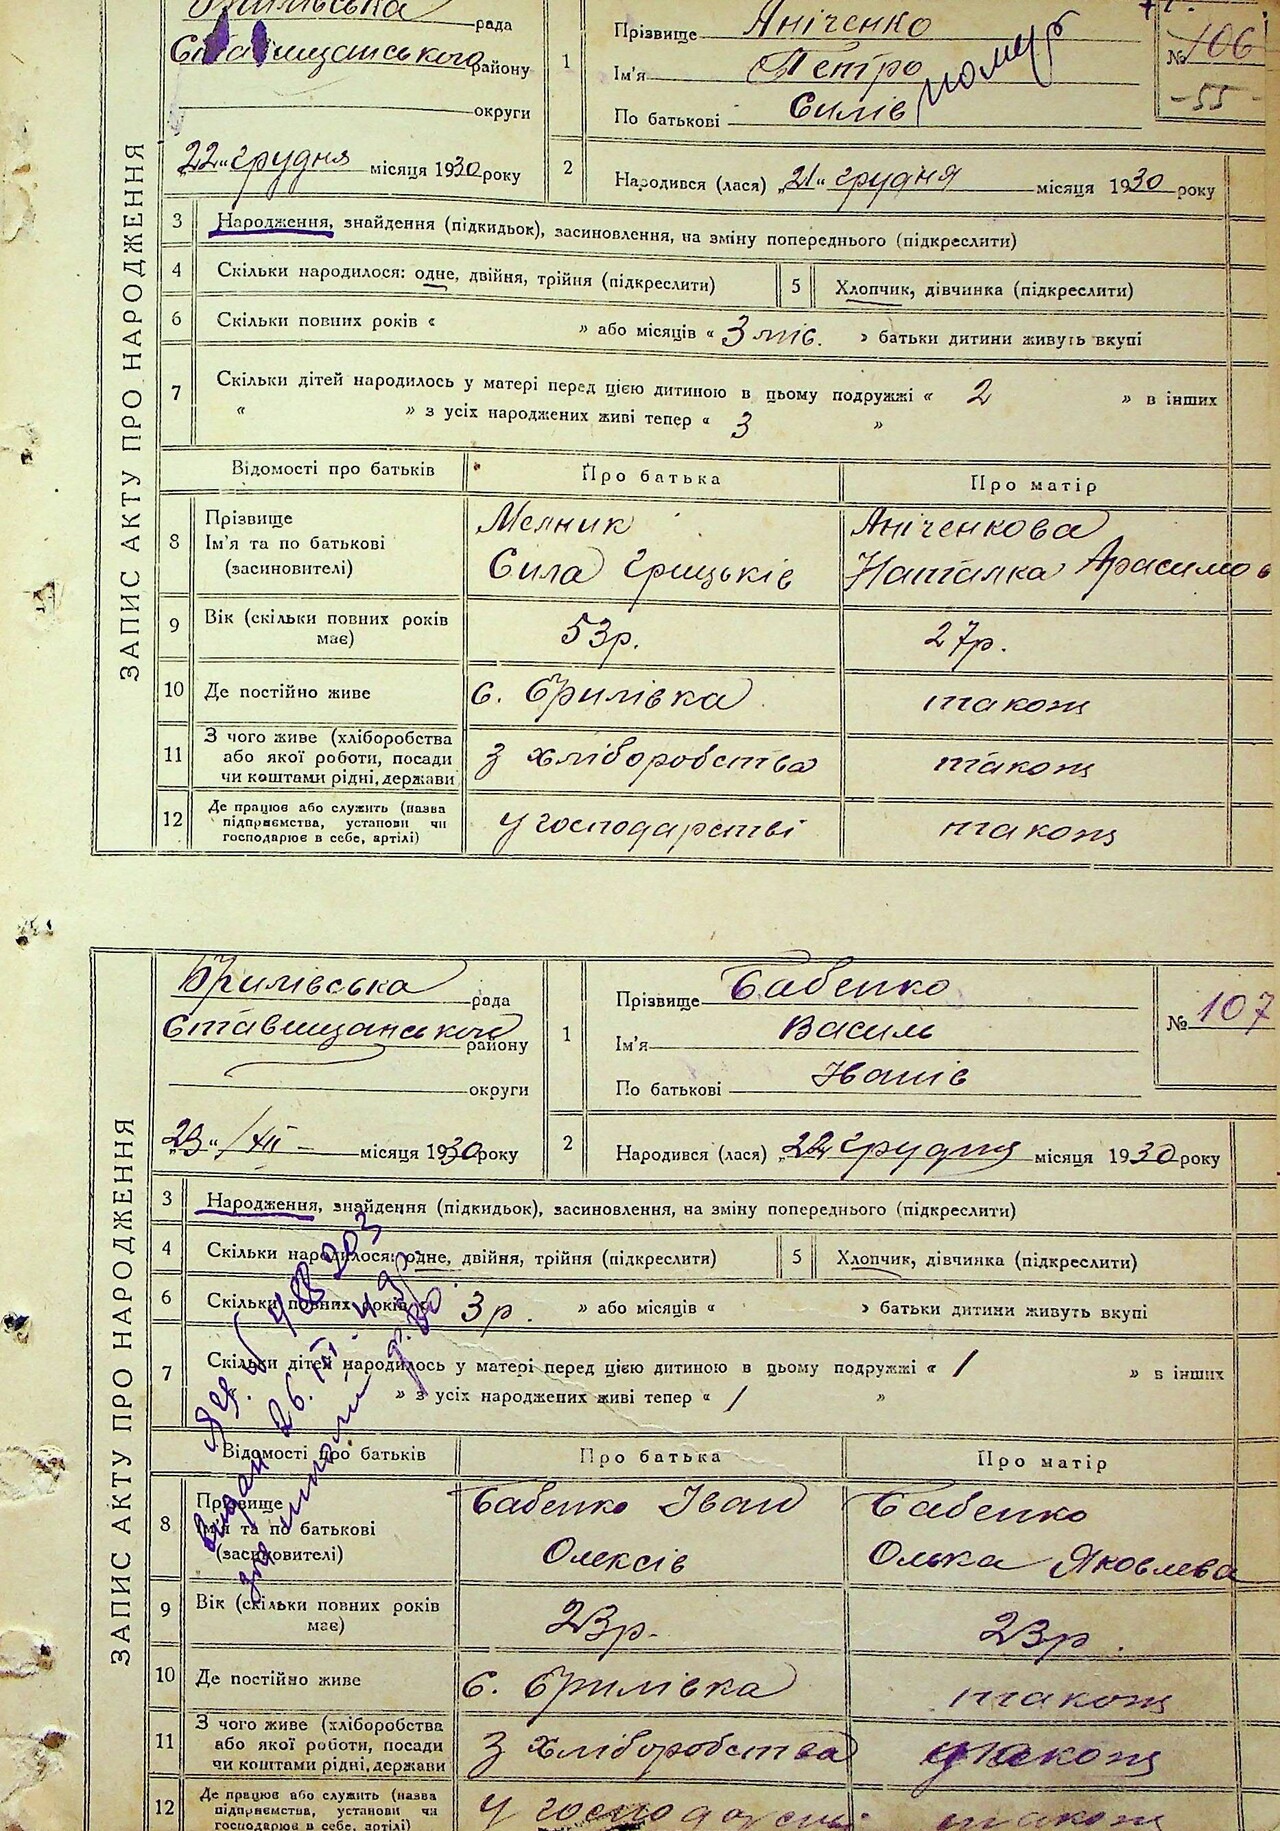 рада
Ставищанського району
округи
"22" грудня місяця 1930 року
1
Прізвище Аніченко
Ім'я Петро
По батькові Силів
помер
№ 106
-55-
2
Народився (лася) "21" грудня місяця 1930 року
ЗАПИС АКТУ ПРО НАРОДЖЕННЯ
3 Народження, знайдення (підкидьок), засиновлення, на зміну попереднього (підкреслити)
4 Скільки народилося: одне, двійня, трійня (підкреслити) 5 Хлопчик, дівчинка (підкреслити)
6 Скільки повних років « » або місяців « 3 міс. » батьки дитини живуть вкупі
7 Скільки дітей народилось у матері перед цією дитиною в цьому подружжі « 2 » в інших
« » з усіх народжених живі тепер « 3 »
Відомості про батьків Про батька Про матір
8 Прізвище Мелник Аніченкова
Ім'я та по батькові Сила Грицьків Наталка
(засиновителі)
9 Вік (скільки повних років має) 53р. 27р.
10 Де постійно живе с. Брилівка також
11 З чого живе (хліборобства або якої роботи, посади чи коштами рідні, держави з хліборобства також
12 Де працює або служить (назва підприємства, установи чи господарює в себе, артілі) у господарстві також
Брилівська рада
Ставищанського району
округи
"23" /XII – місяця 1930 року
1
Прізвище Бабенко
Ім'я Василь
По батькові Іванів
№ 107
2
Народився (лася) "22" грудня місяця 1930 року
ЗАПИС АКТУ ПРО НАРОДЖЕННЯ
3 Народження, знайдення (підкидьок), засиновлення, на зміну попереднього (підкреслити)
4 Скільки народилося: одне, двійня, трійня (підкреслити) 5 Хлопчик, дівчинка (підкреслити)
6 Скільки повних років « 3р. » або місяців « » батьки дитини живуть вкупі
7 Скільки дітей народилось у матері перед цією дитиною в цьому подружжі « 1 » в інших
» з усіх народжених живі тепер « 1 »
Відомості про батьків Про батька Про матір
8 Прізвище Бабенко Іван Бабенко
Ім'я та по батькові Олексів Олька Яковлева
(засиновителі)
9 Вік (скільки повних років має) 23р. 23р.
10 Де постійно живе с. Брилівка також
11 З чого живе (хліборобства або якої роботи, посади чи коштами рідні, держави з хліборобства також
12 Де працює або служить (назва підприємства, установи чи господарює в себе, артілі) у також